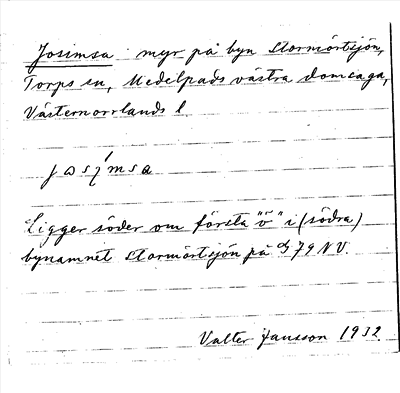 Josimsa myr på byn Stormörtsjön,
Torps sn, Medelpads västra domsaga,
Västernorrlands l.
josimsa
Ligger söder om första "ö" i (södra)
bynamnet Stormörtsjön på 79 NV.
Valter Jansson 1932.